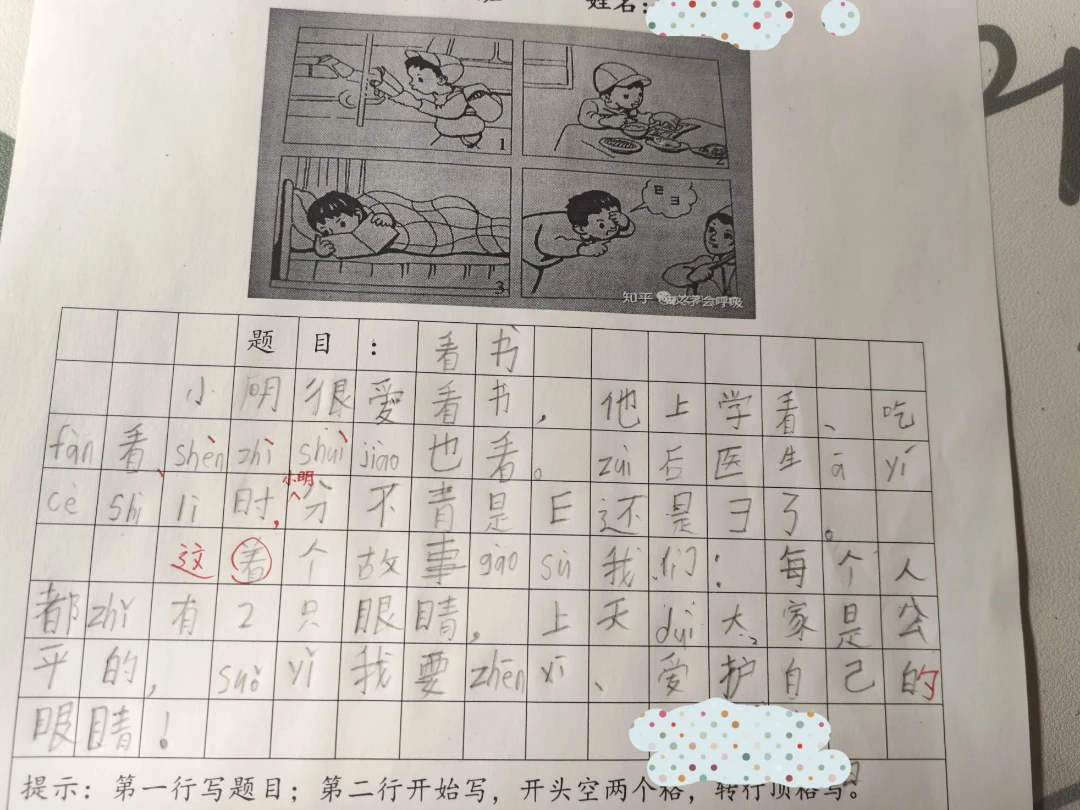 姓名:
1
2
3
E
彐
知乎
题目：看书
小明很爱看书，他上学看、吃
fàn看、shèn zhì shuì jiào也看。zuì后医生ā yí
cè shì lì时，小明分不青是E还是ヨ了。
这看个故事gào sù我们：每个人
都zhǐ有2只眼睛，上天duì大家是公
平的，suǒ yǐ我要zhēn xī、爱护自己的
眼睛！
提示：第一行写题目；第二行开始写，开头空两个格，转行顶格写。